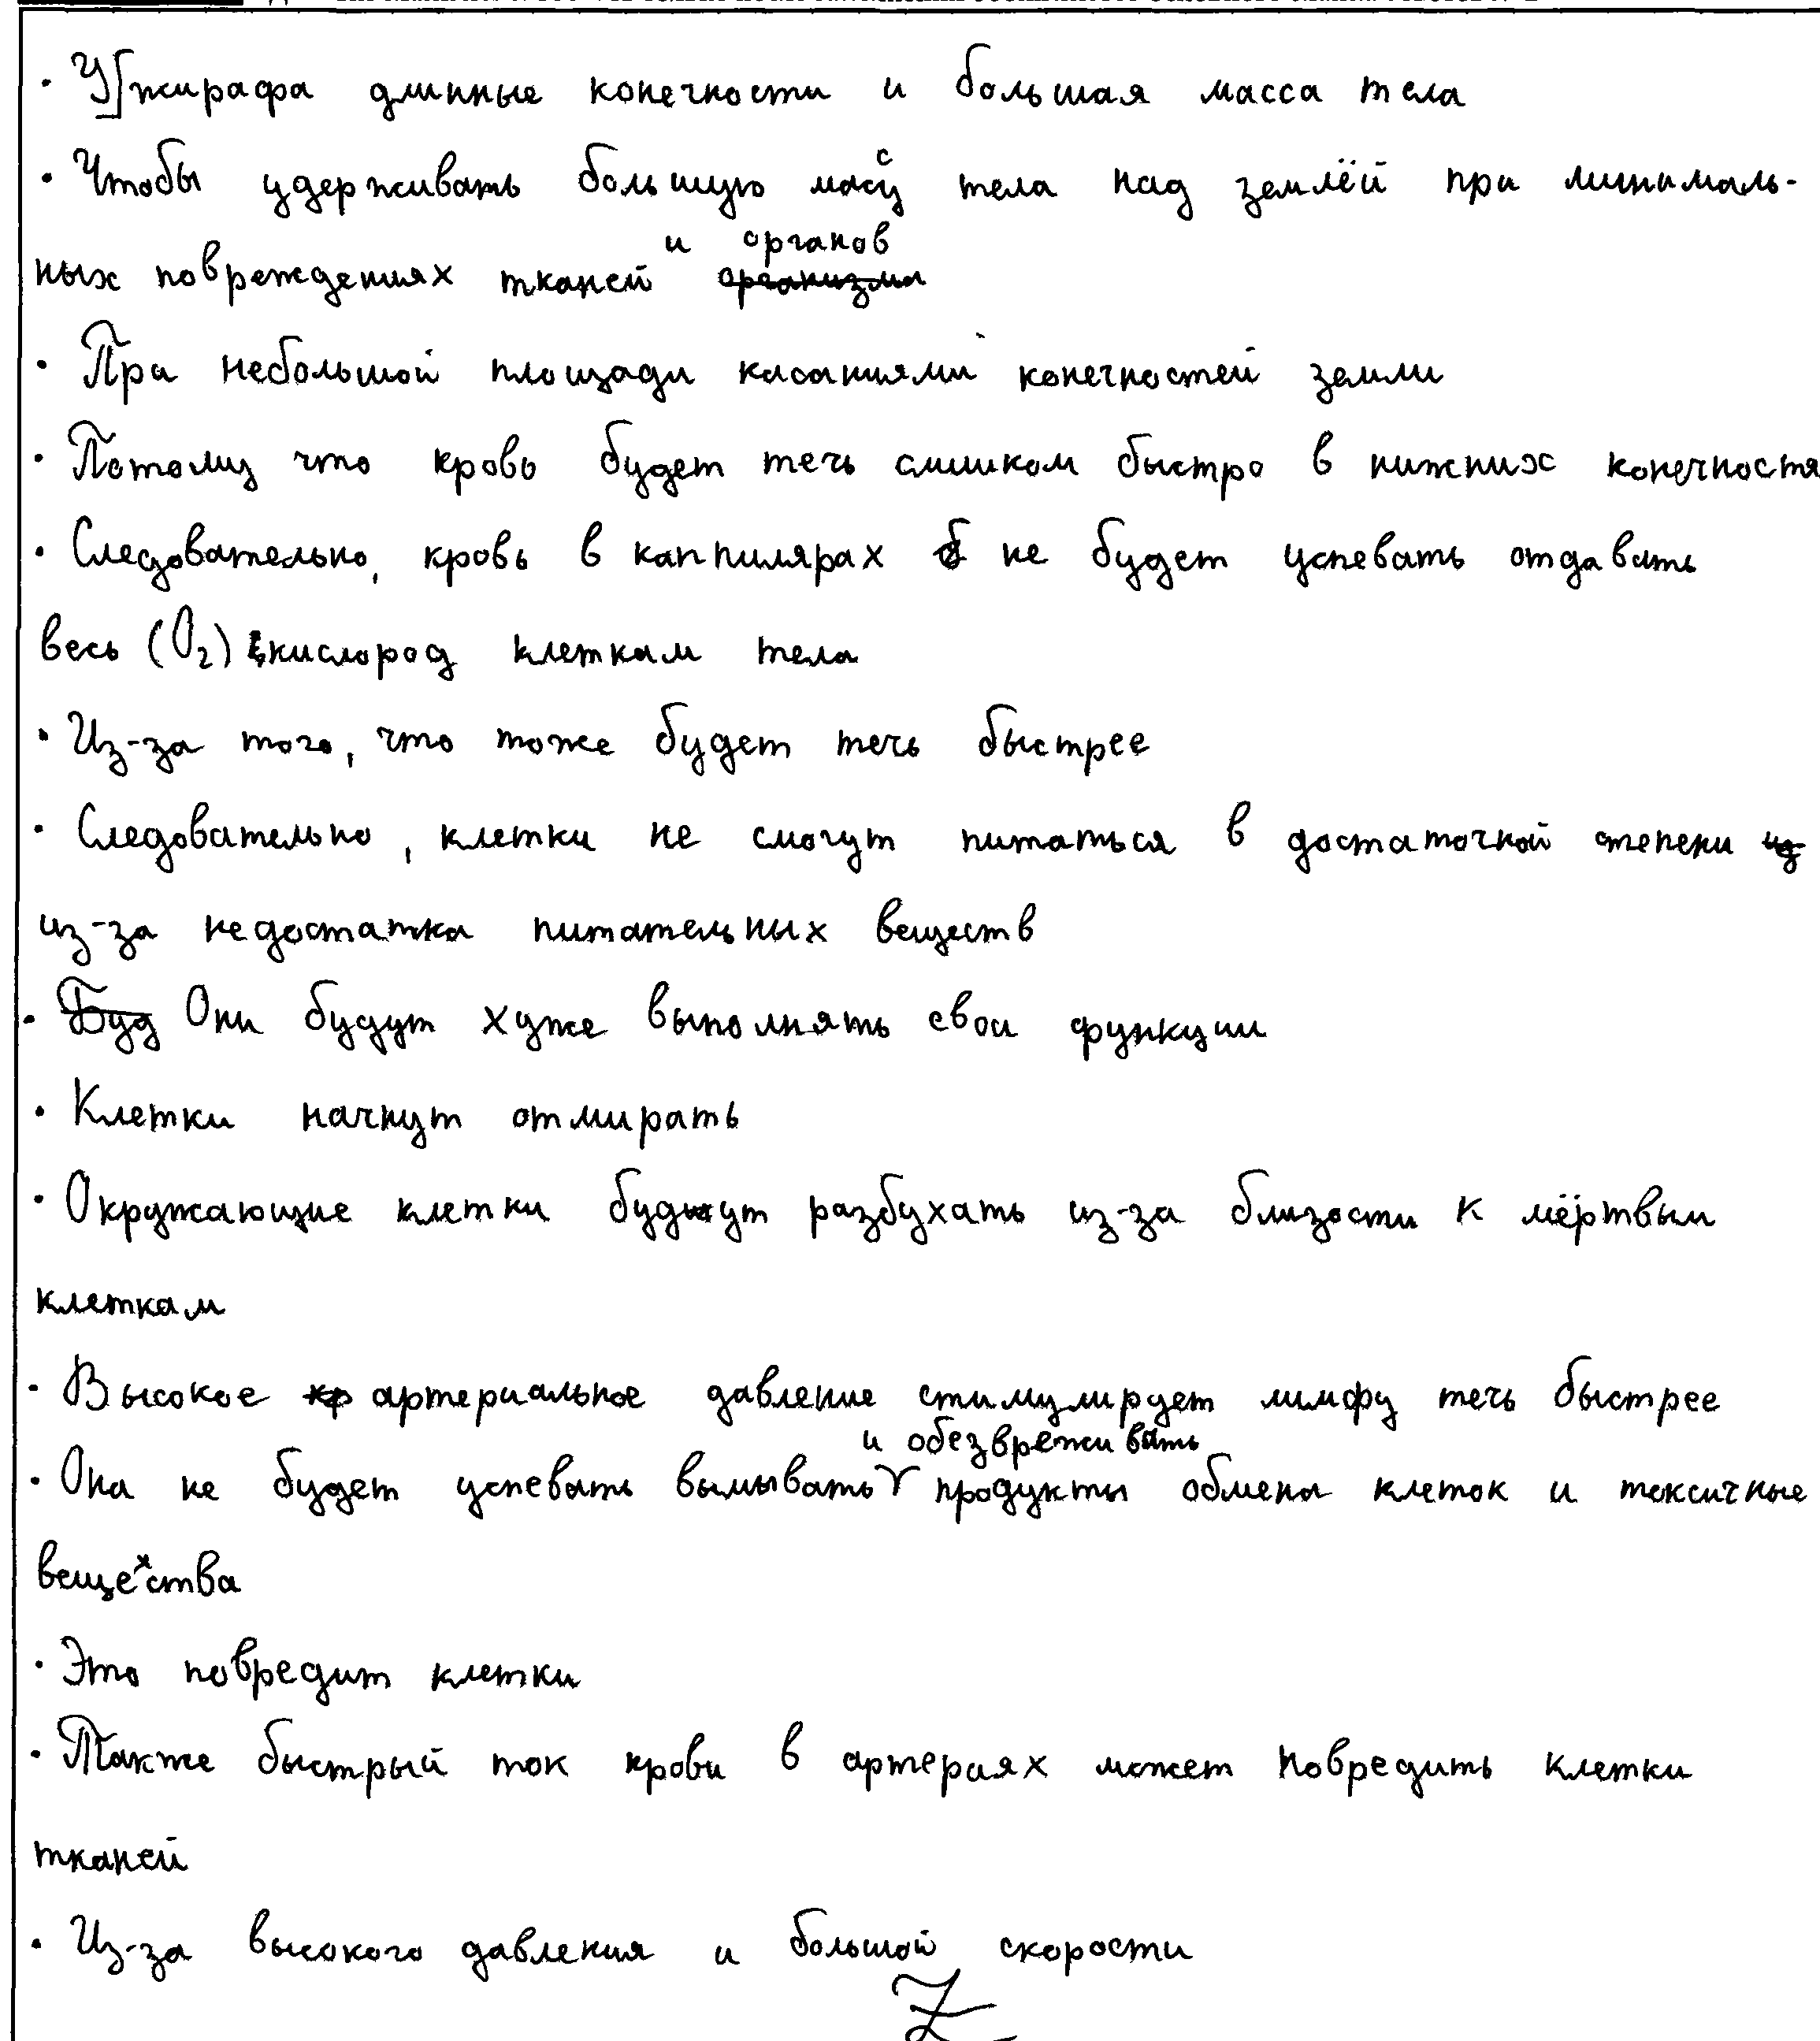 · У жирафа длинные конечности и большая масса тела
· Чтобы удерживать большую массу тела над землёй при минималь-
ных повреждениях тканей и органов
· При небольшой площади касаниями конечностей земли
· Потому что кровь будет течь слишком быстро в нижних конечностя
· Следовательно, кровь в каппилярах не будет успевать отдавать
весь (O₂) кислород клеткам тела
· Из-за того, что тоже будет течь быстрее
· Следовательно, клетки не смогут питаться в достаточной степени
из-за недостатка питательных веществ
· Они будут хуже выполнять свои функции
· Клетки начнут отмирать
· Окружающие клетки будут разбухать из-за близости к мёртвым
клеткам
· Высокое артериальное давление стимулирует лимфу течь быстрее
· Она не будет успевать вымывать и обезвреживать продукты обмена клеток и токсичные
вещества
· Это повредит клетки
· Также быстрый ток крови в артериях может повредить клетки
тканей
· Из-за высокого давления и большой скорости
Z